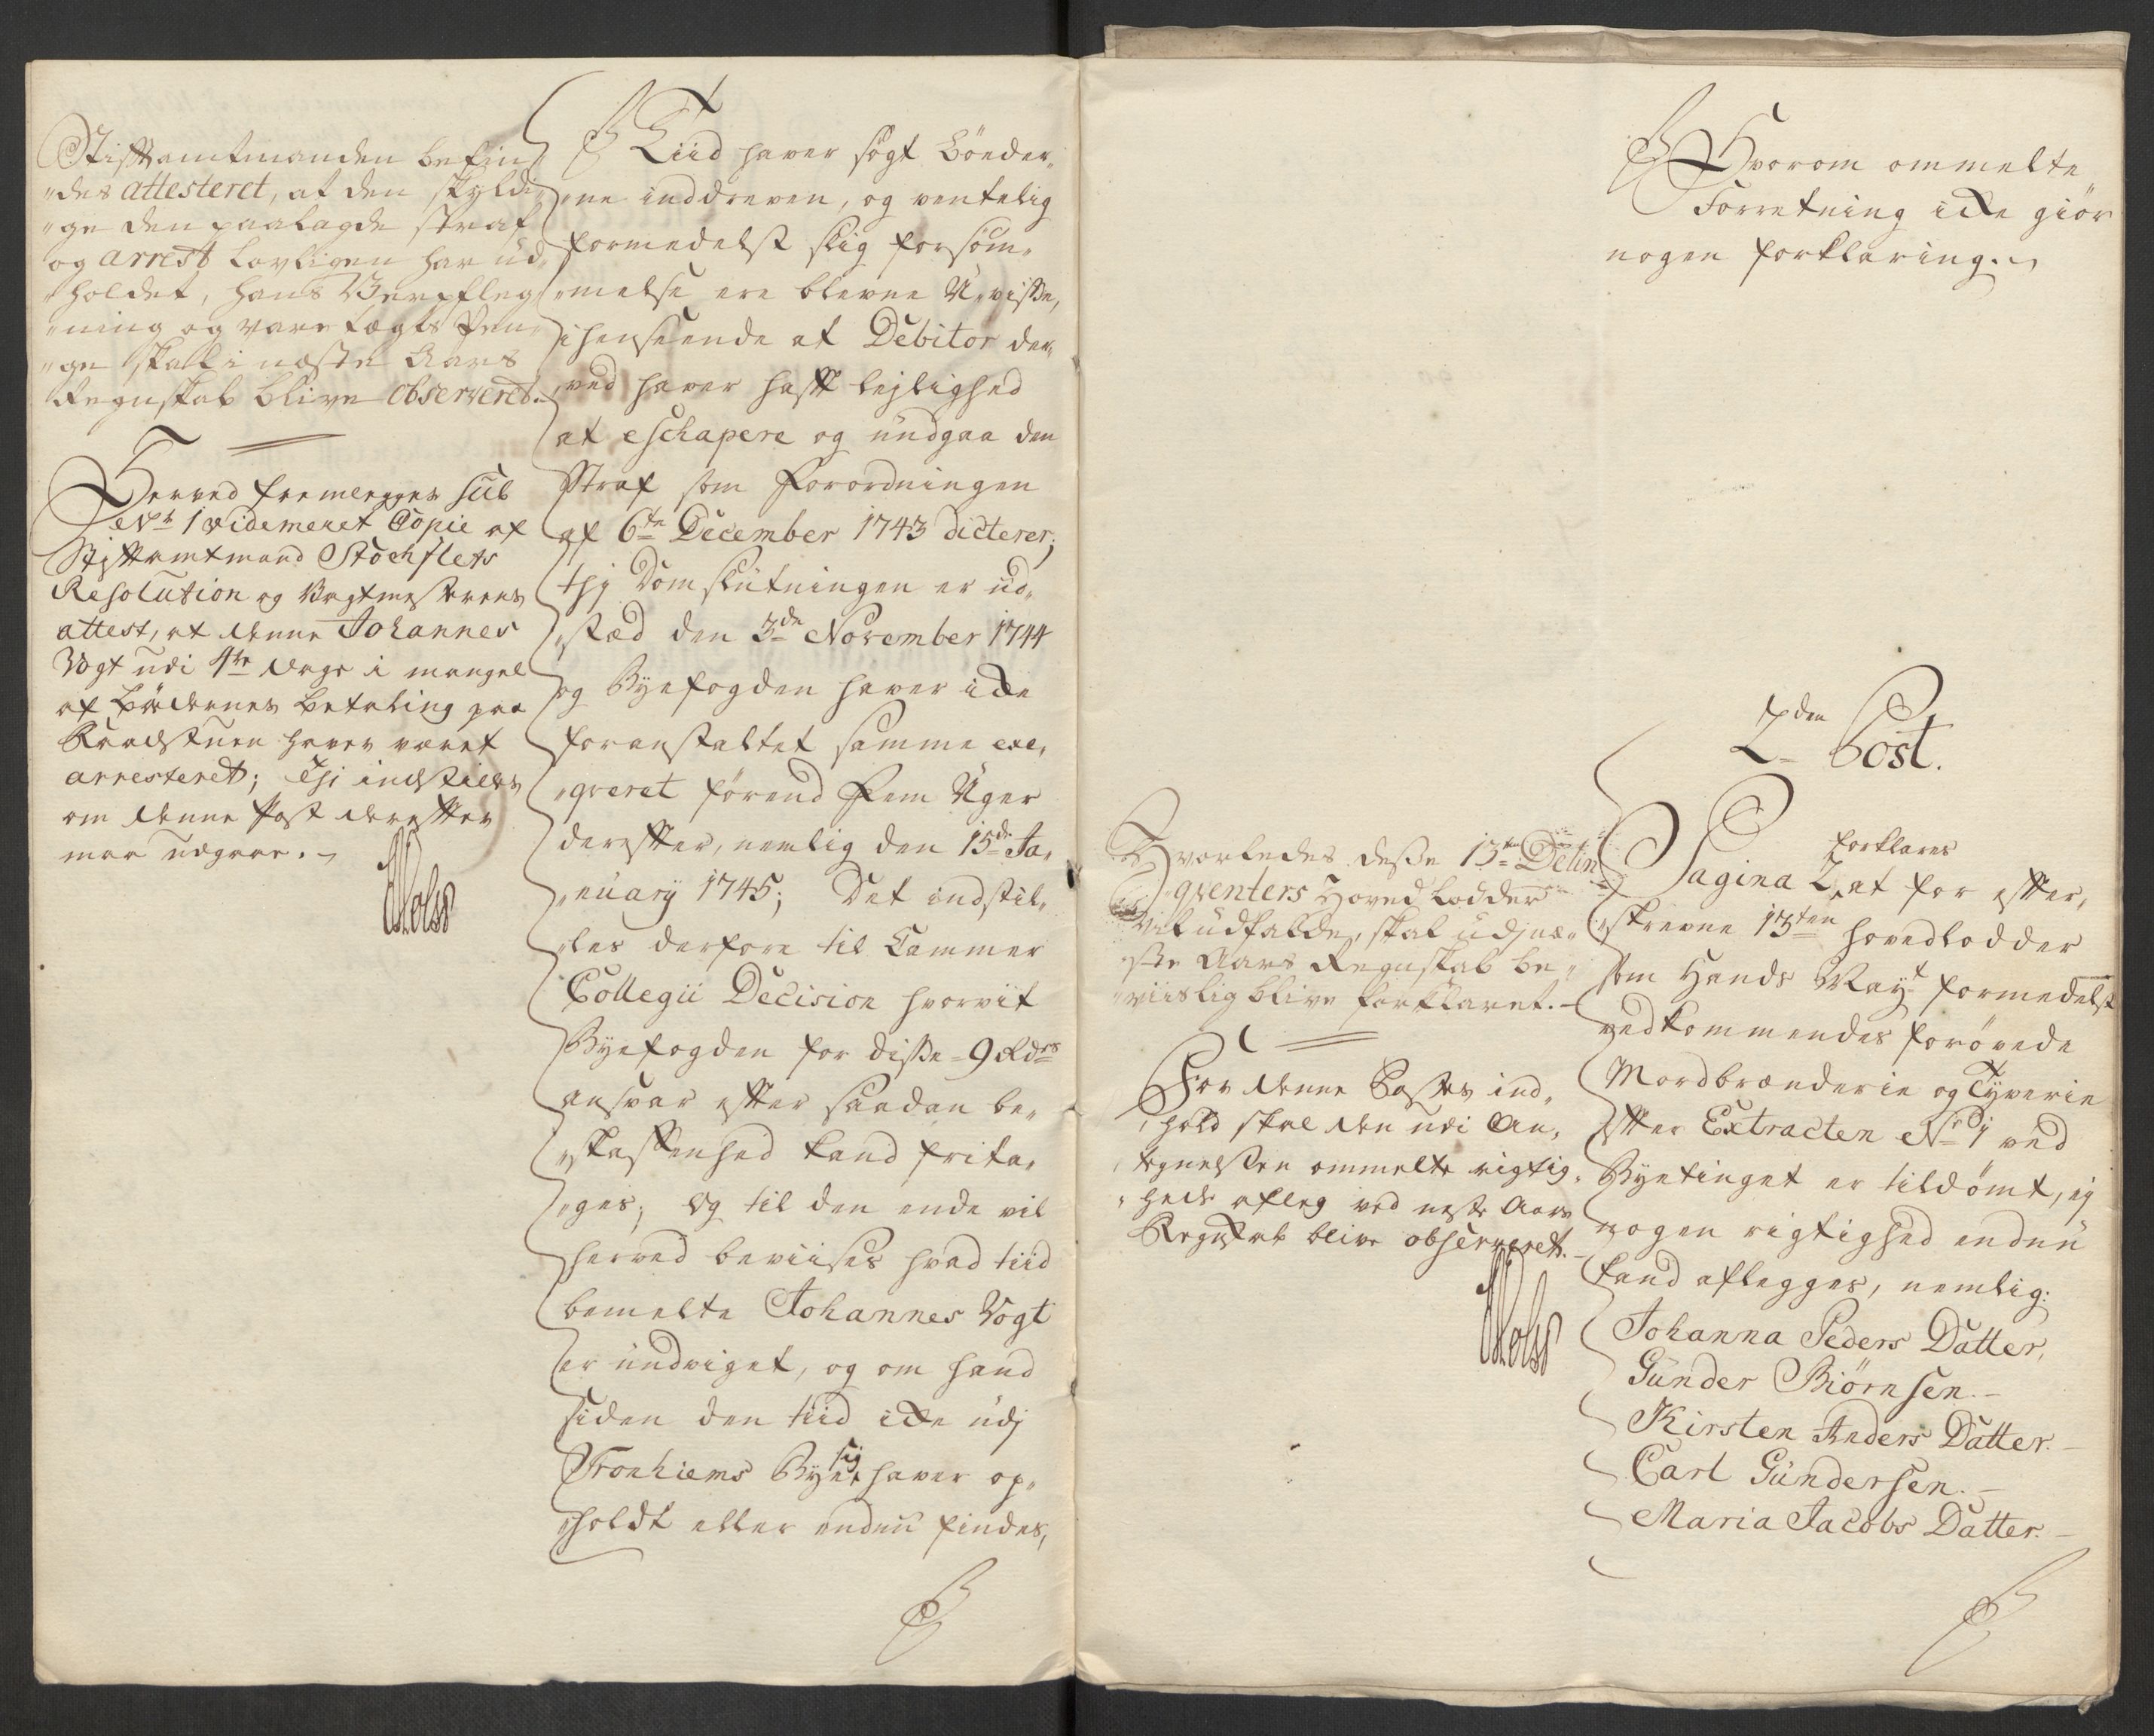 Stiftamtmanden befin„
„des attesteret, at den skyldi„
„ge den paalagde straf
og arrest lovligen har ud„
„holdet, hans Verpfleg„
„ning og varetægts Pen„
„ge skal i næste Aars
Regnskab blive observeret.
Herved fremlegges sub
No 1 videmeret Copie af
Stiftamtmand Stochflets
Resolution og Vagtmesterens
attest, at denne Johannes
Vogt udi 4re dage i mangel
af bödernes betaling paa
Raadstuen haver været
arresteret; Thi indstilles
om denne Post derefter
maa udgaae.
Tiid haver søgt böeder„
„ne inddreven, og ventelig
formedelst slig forsöm„
„melse ere blevne U„visse,
i henseende at Debitor der„
„ved haver hafft lejlighed
at eschapere og undgaa den
Straf som Forordningen
af 6te December 1743 dicterer;
thj Domslutningen er ud„
„stæd den 3de November 1744
og Byefogden haver icke
foranstaltet samme exe„
„qveret förend Fem Uger
derefter, nemlig den 15de Ja„
„nuary 1745; Det indstil„
„les derfore til Cammer
Collegii Decision hvorvit
Byefogden for disse 9 Rdrs
ansvar efter saadan be„
„skaffenhed kand frita„
„ges; Og til den ende vil
herved beviises hvad tiid
bemelte Johannes Vogt
er undviget, og om hand
siden den tiid icke udj
Tronhiems Bye sig haver op„
„holdt eller endnu findes,
Hvorom ommelte
Forretning icke giör
nogen forklaring.
Hvorledes desse 13ten Delin„
„qventers Hoved Lodder
vil udfalde, skal udj næ„
„ste Aars Regnskab be„
„viislig blive forklaret.
For denne Postes ind„
„hold skal den udi An„
„tegnelsen ommelte rigtig„
„heds aflæg ved neste Aars
Regnskab blive observeret.
2den Post.
Pagina 2 forklares at for effter„
„skrevne 13ten hovedlodder
som Hands Mayt formedelst
vedkommendes forövede
Mordbrænderie og Tyverie
efter Extracten No 1 ved
Byetinget er tildömt, ej
nogen rigtighed endnu
kand aflegges, nemlig:
Johanna Peders Datter,
Gunder Biörnsen.
Kirsten Anders Datter.
Carl Gundersen.
Maria Jacobs Datter.